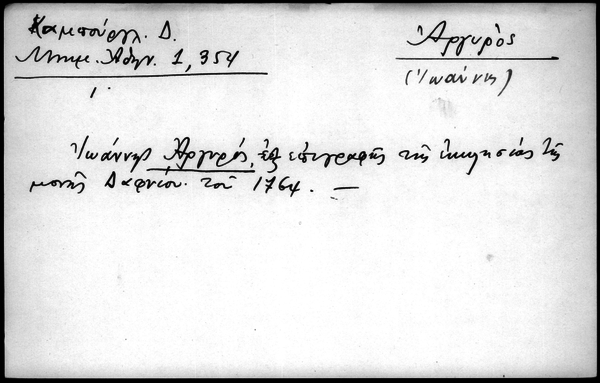 Καμπούρογλ. Δ.
Μνημ. Αθην. 1, 354
Ἀργυρὸς
(Ἰωάννης)
Ἰωάννης Ἀργυρός, ἐξ ἐπιγραφῆς τῆς ἐκκλησίας τῆς
μονῆς Δαφνίου τοῦ 1764. —